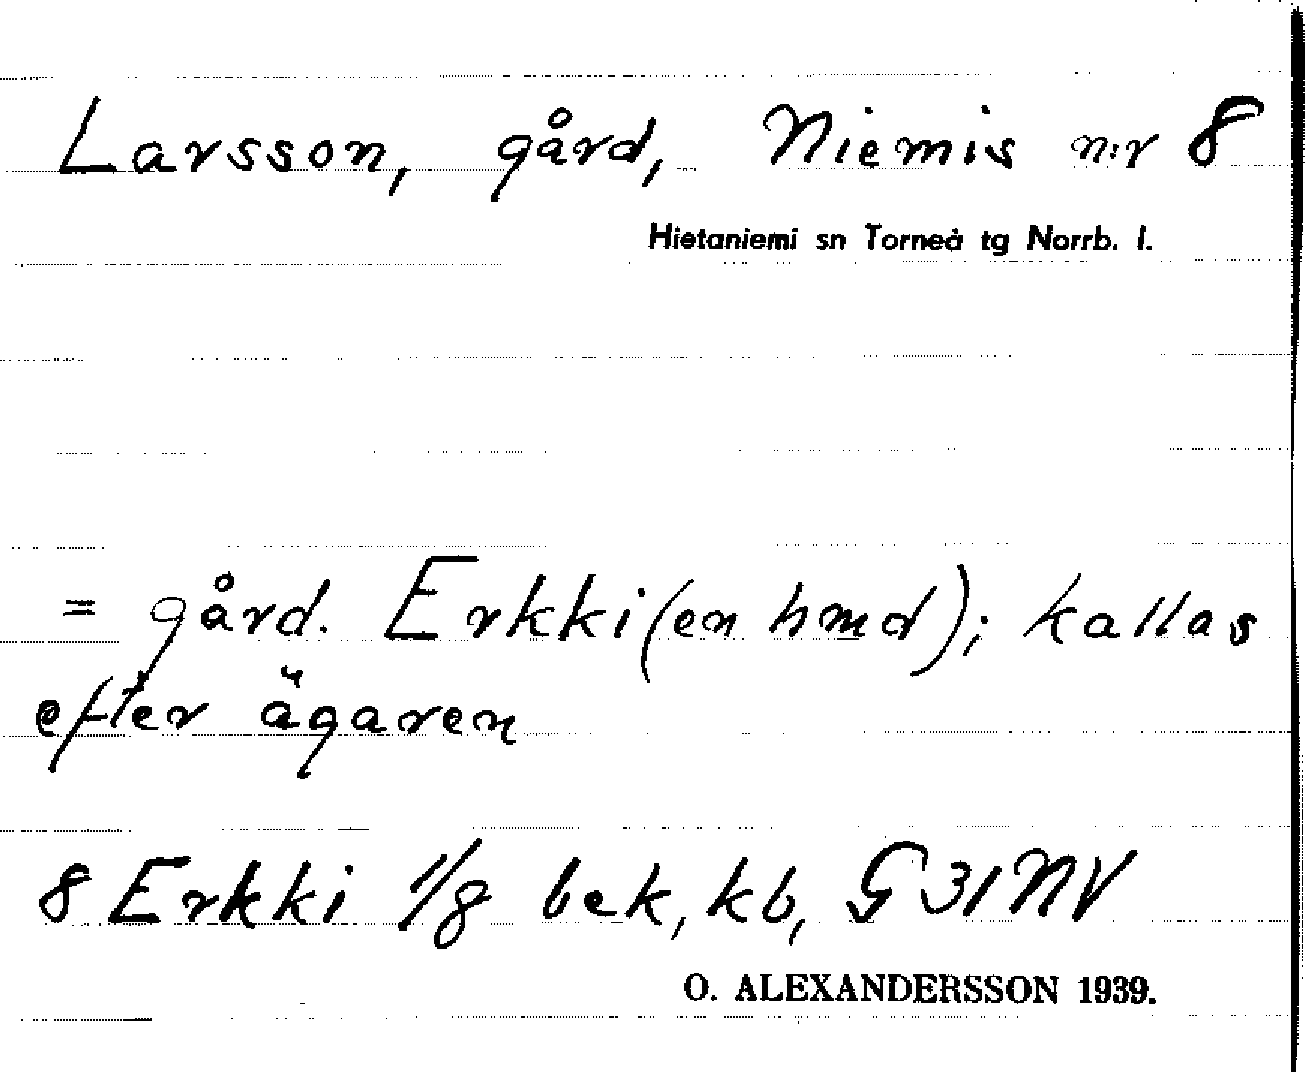 Larsson, gård, Niemis n:r 8
Hietaniemi sn Torneå tg Norrb. l.
= gård. Erkki (en hmd); kallas
efter ägaren
8 Erkki 1/8 bek, kb, G 31 NV
O. ALEXANDERSSON 1939.